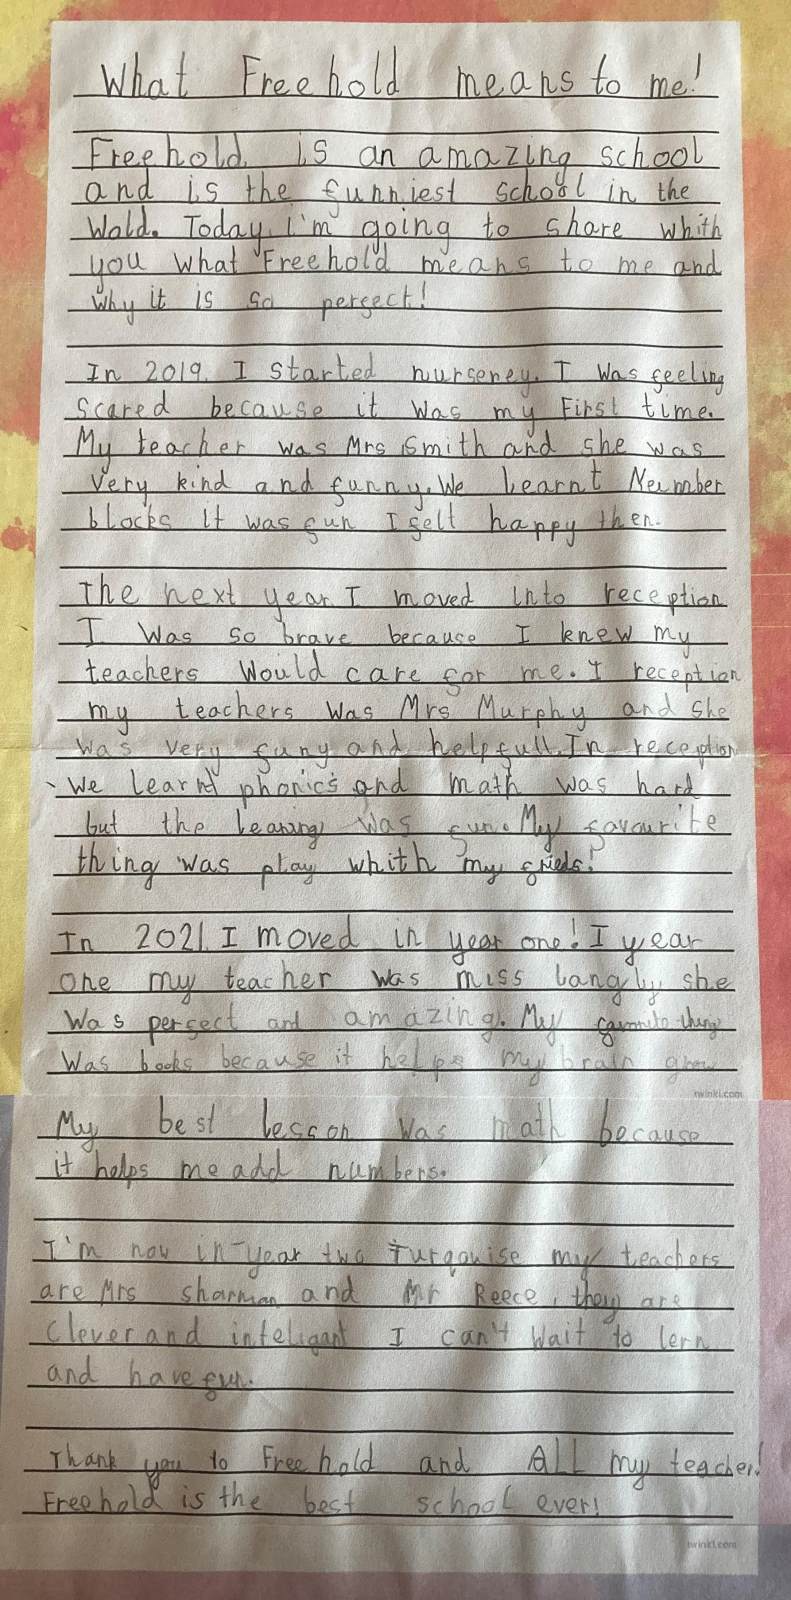 What Freehold means to me!
Freehold is an amazing school
and is the funniest school in the
Wold. Today, i'm going to share whith
you what Freehold means to me and
why it is so perfect!
In 2019, I started nurserey. I was feeling
scared because it was my First time.
My teacher was Mrs Smith and she was
very kind and funny. We learnt Number
blocks it was fun I felt happy then.
The next year I moved into reception
I was so brave because I knew my
teachers would care for me. I reception
my teachers was Mrs Murphy and she
was very funy and helpfull. In reception
we learnt phonics and math was hard
but the learning was fun. My favourite
thing was play whith my frieds!
In 2021 I moved in year one! I year
one my teacher was miss langly she
was perfect and amazing. My thing
was books because it helps my brain grow
twinkl.com
My best lesson was math because
it helps me add numbers.
I'm now in year two Turqouise my teachers
are Mrs sharman and Mr Reece, they are
clever and inteligant I can't wait to lern
and have fun.
Thank you to Freehold and All my teacher!
Freehold is the best school ever!
twinkl.com